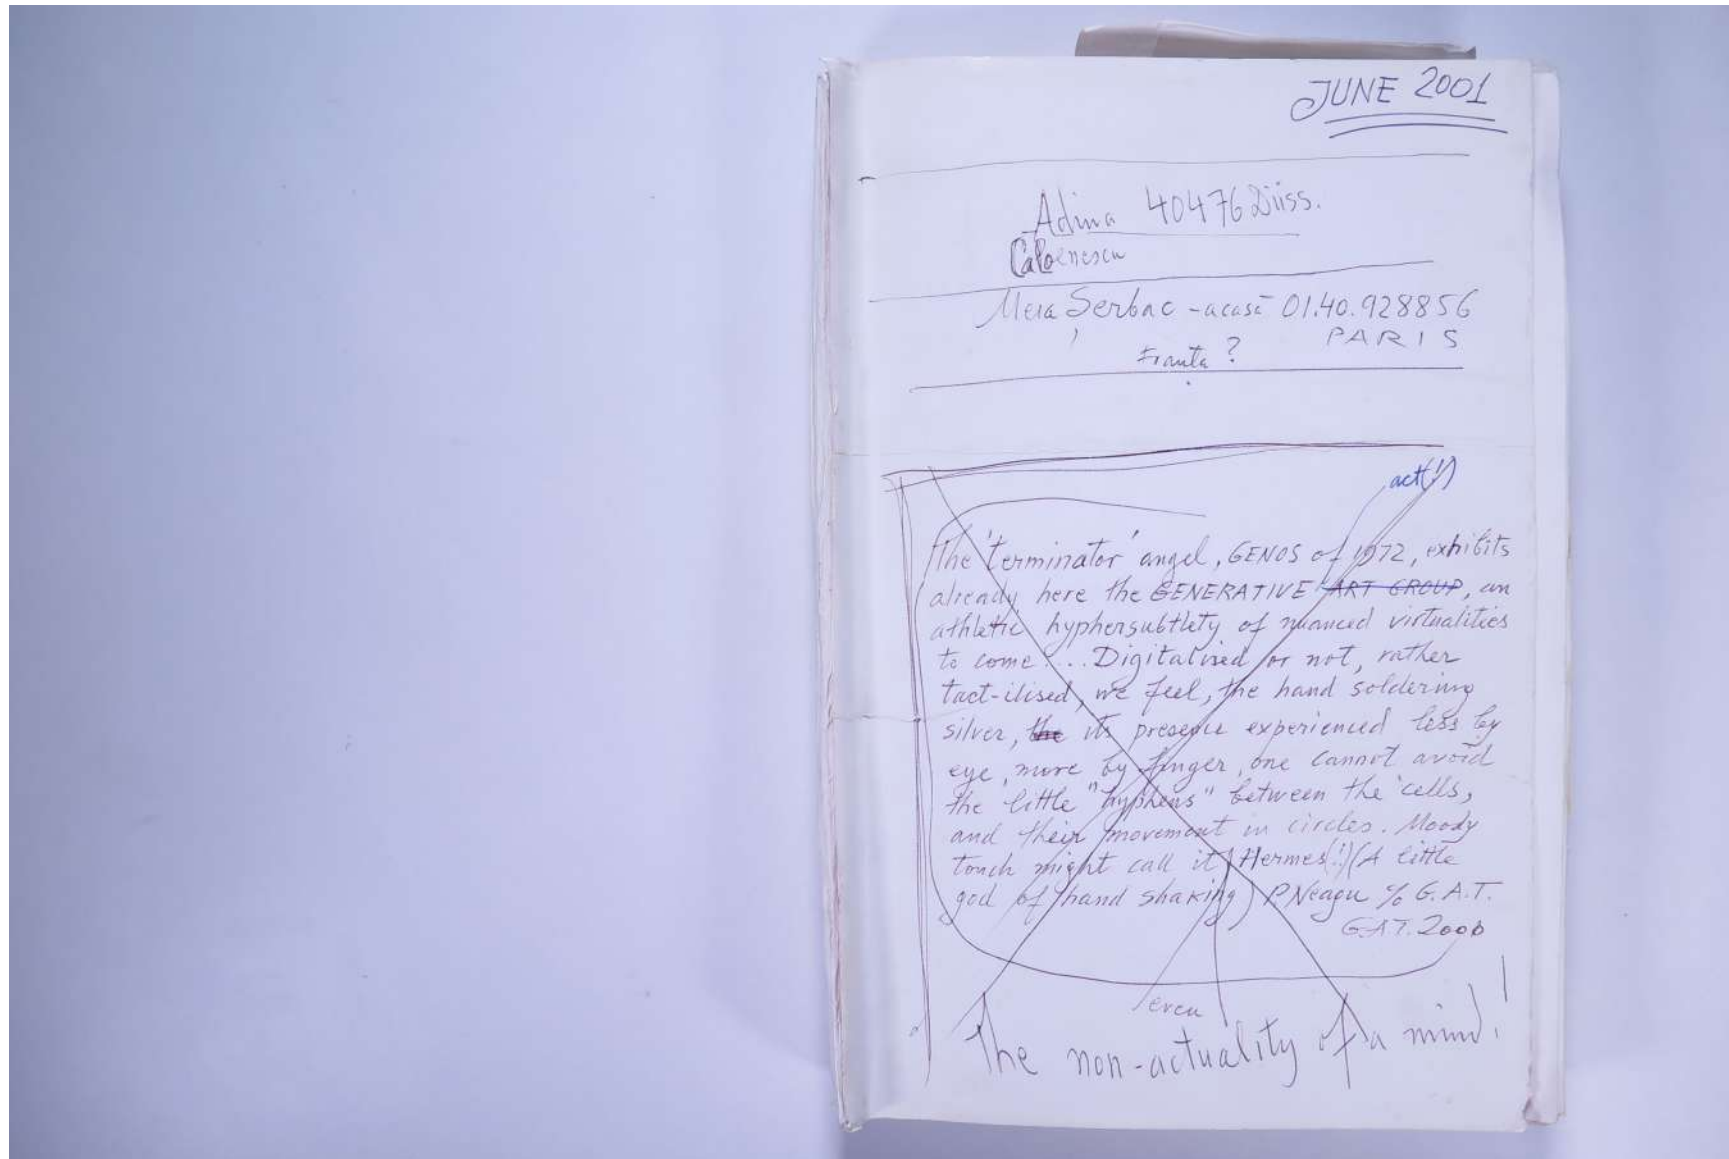 JUNE 2001
Adina 40476 Düss.
Mera Serbac - acasă 01.40.928856
PARIS
Franta ?
act(!)
The 'terminator' angel, GENOS of 1972, exhibits
already here the GENERATIVE ART GROUP, an
athletic hyphersubtlety of nuanced virtualities
to come.... Digitalised or not, rather
tact-ilised, we feel, the hand soldering
silver, the its presence experienced less by
eye, more by finger, one cannot avoid
the little "hyphens" between the cells,
and their movement in circles. Moody
touch might call it Hermes(!) (A little
god of hand shaking) P.Neagu % G.A.T.
G.A.T. 2000
even
The non-actuality of a mind!